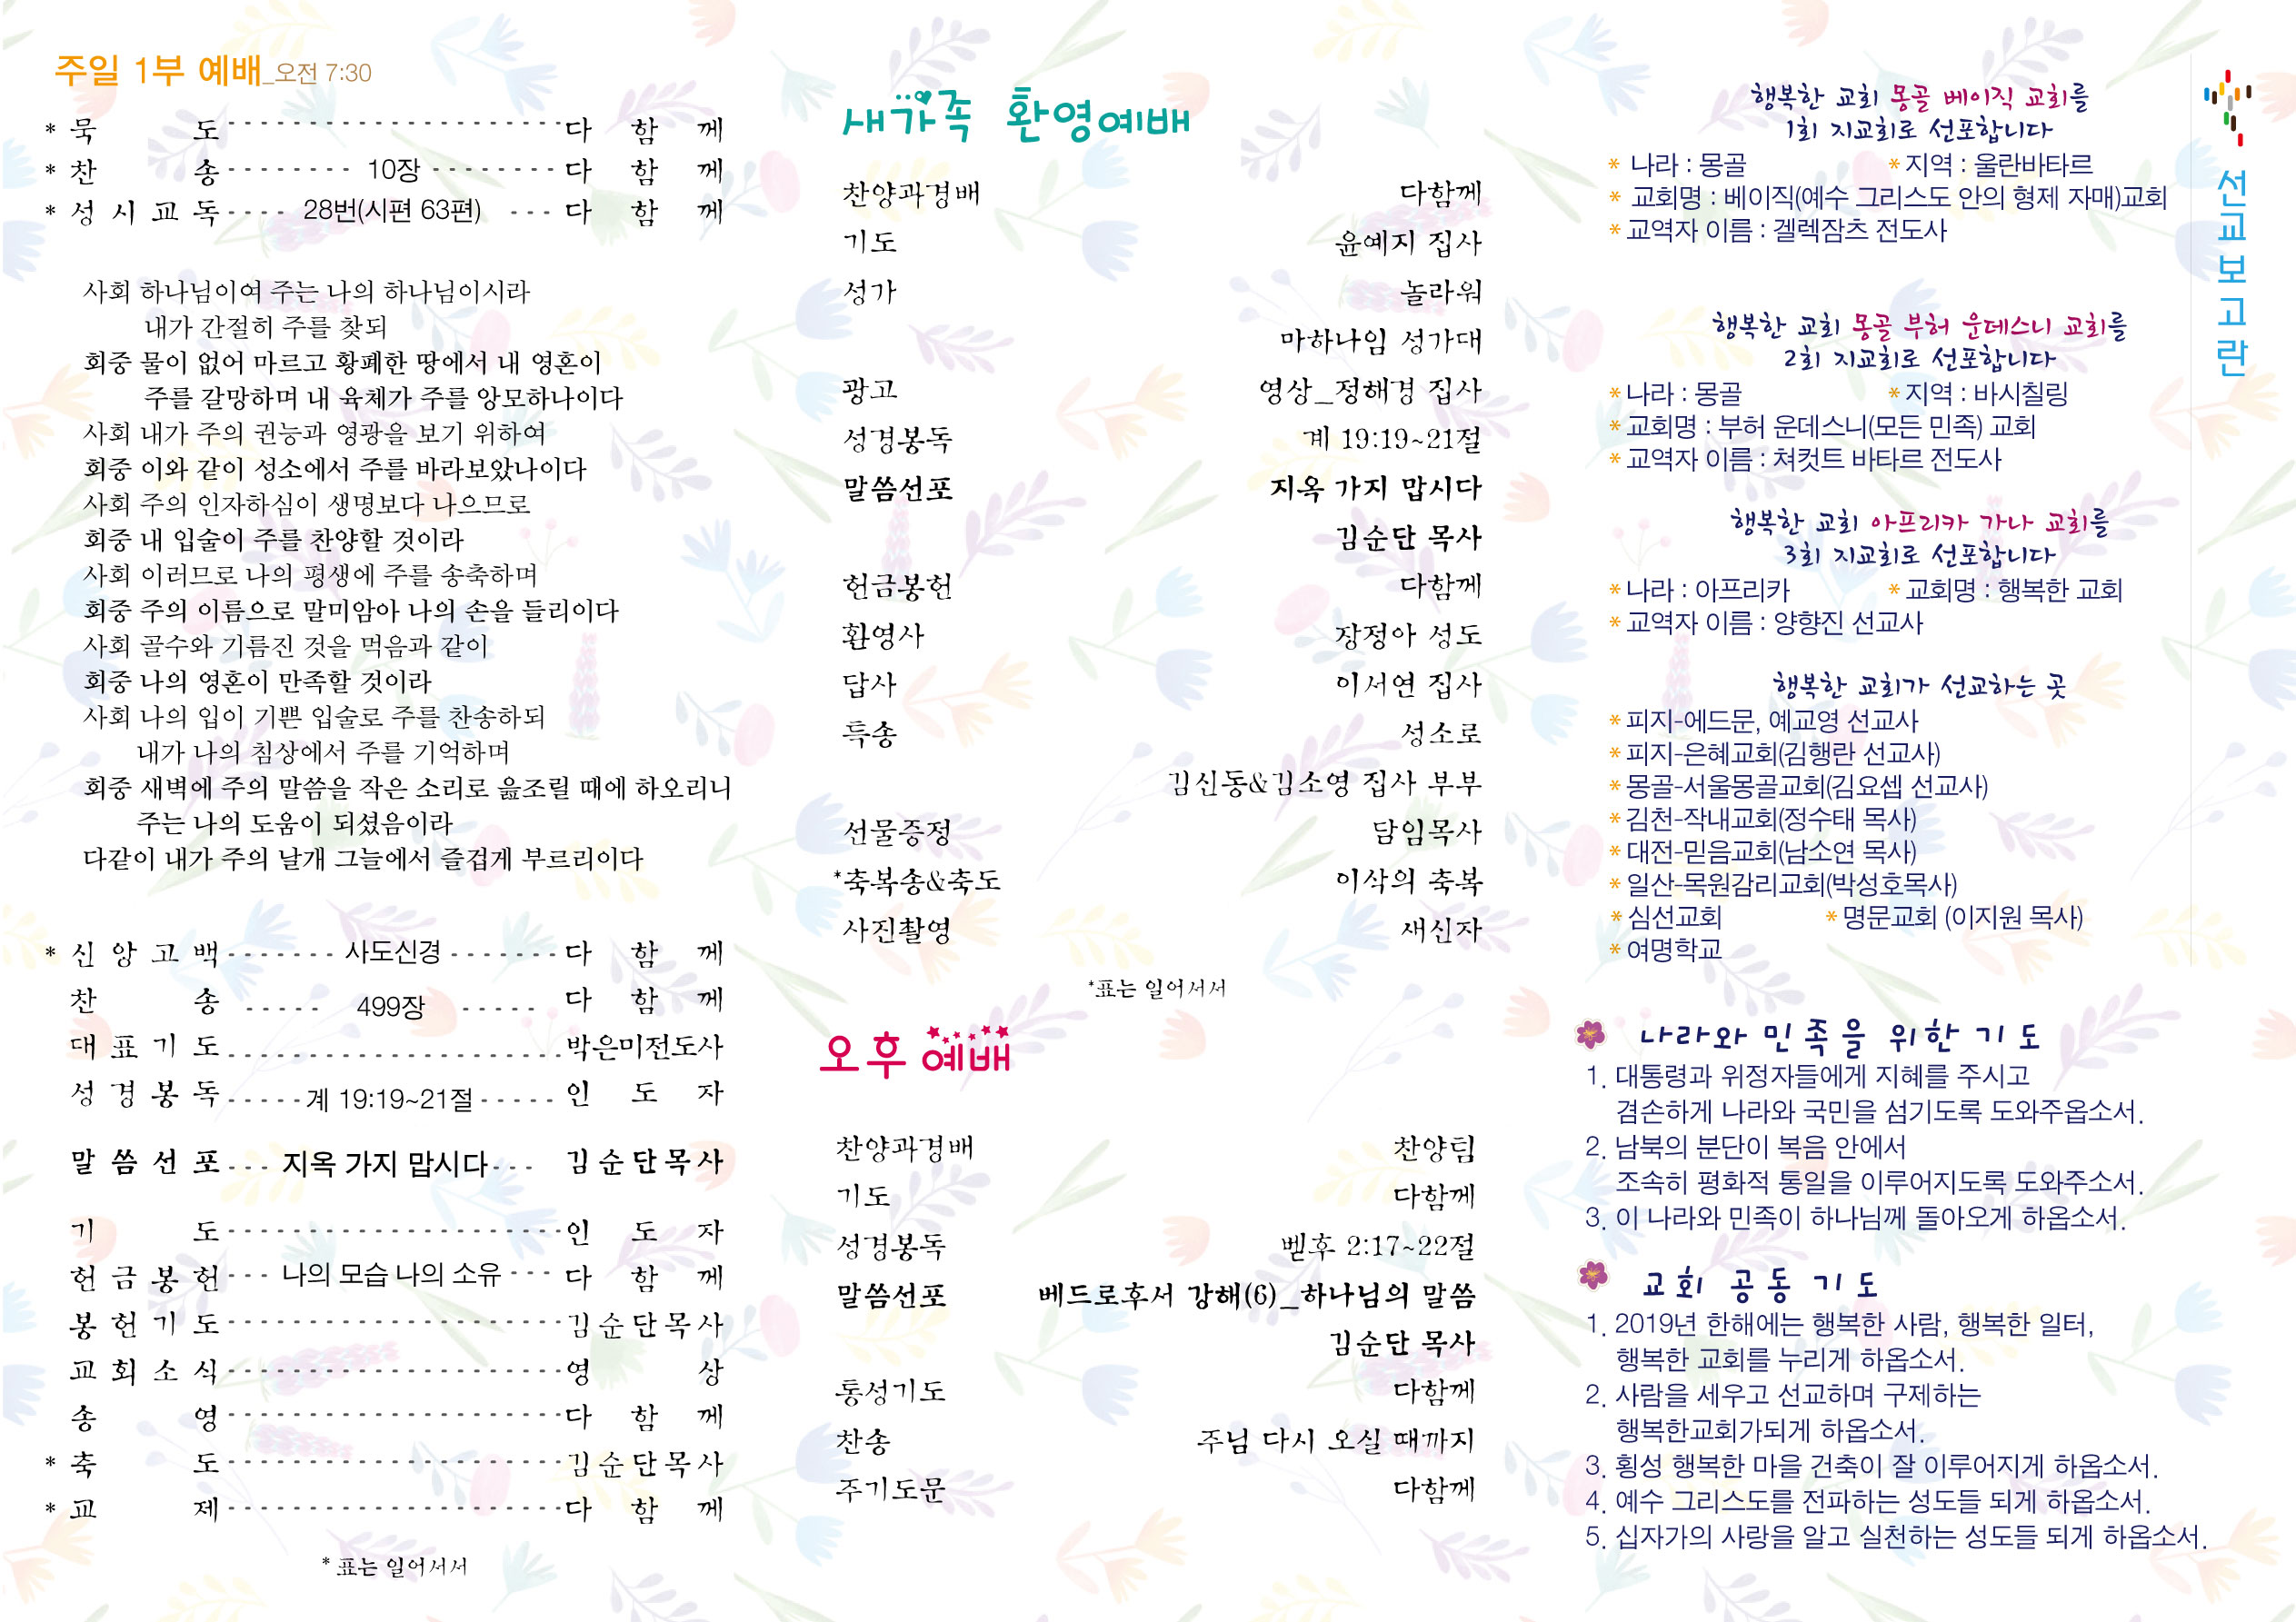 주일 1부 예배_오전 7:30
* 묵 도 다 함 께
* 찬 송 10장 다 함 께
* 성 시 교 독 28번(시편 63편) 다 함 께
사회 하나님이여 주는 나의 하나님이시라
내가 간절히 주를 찾되
회중 물이 없어 마르고 황폐한 땅에서 내 영혼이
주를 갈망하며 내 육체가 주를 앙모하나이다
사회 내가 주의 권능과 영광을 보기 위하여
회중 이와 같이 성소에서 주를 바라보았나이다
사회 주의 인자하심이 생명보다 나으므로
회중 내 입술이 주를 찬양할 것이라
사회 이러므로 나의 평생에 주를 송축하며
회중 주의 이름으로 말미암아 나의 손을 들리이다
사회 골수와 기름진 것을 먹음과 같이
회중 나의 영혼이 만족할 것이라
사회 나의 입이 기쁜 입술로 주를 찬송하되
내가 나의 침상에서 주를 기억하며
회중 새벽에 주의 말씀을 작은 소리로 읊조릴 때에 하오리니
주는 나의 도움이 되셨음이라
다같이 내가 주의 날개 그늘에서 즐겁게 부르리이다
* 신 앙 고 백 사도신경 다 함 께
찬 송 499장 다 함 께
대 표 기 도 박은미전도사
성 경 봉 독 계 19:19~21절 인 도 자
말 씀 선 포 지옥 가지 맙시다 김 순 단 목 사
기 도 인 도 자
헌 금 봉 헌 나의 모습 나의 소유 다 함 께
봉 헌 기 도 김 순 단 목 사
교 회 소 식 영 상
송 영 다 함 께
* 축 도 김 순 단 목 사
* 교 제 다 함 께
* 표는 일어서서
새가족 환영예배
찬양과경배 다함께
기도 윤예지 집사
성가 놀라워
마하나임 성가대
광고 영상_정해경 집사
성경봉독 계 19:19~21절
말씀선포 지옥 가지 맙시다
김순단 목사
헌금봉헌 다함께
환영사 장정아 성도
답사 이서연 집사
특송 성소로
김신동&김소영 집사 부부
선물증정 담임목사
*축복송&축도 이삭의 축복
사진촬영 새신자
*표는 일어서서
오후 예배
찬양과경배 찬양팀
기도 다함께
성경봉독 벧후 2:17~22절
말씀선포 베드로후서 강해(6)_하나님의 말씀
김순단 목사
통성기도 다함께
찬송 주님 다시 오실 때까지
주기도문 다함께
선교보고란
행복한 교회 몽골 베이직 교회를
1회 지교회로 선포합니다
* 나라 : 몽골 * 지역 : 울란바타르
* 교회명 : 베이직(예수 그리스도 안의 형제 자매)교회
* 교역자 이름 : 겔렉잠츠 전도사
행복한 교회 몽골 부허 운데스니 교회를
2회 지교회로 선포합니다
* 나라 : 몽골 * 지역 : 바시칠링
* 교회명 : 부허 운데스니(모든 민족) 교회
* 교역자 이름 : 쳐컷트 바타르 전도사
행복한 교회 아프리카 가나 교회를
3회 지교회로 선포합니다
* 나라 : 아프리카 * 교회명 : 행복한 교회
* 교역자 이름 : 양향진 선교사
행복한 교회가 선교하는 곳
* 피지-에드문, 예교영 선교사
* 피지-은혜교회(김행란 선교사)
* 몽골-서울몽골교회(김요셉 선교사)
* 김천-작내교회(정수태 목사)
* 대전-믿음교회(남소연 목사)
* 일산-목원감리교회(박성호목사)
* 심선교회 * 명문교회 (이지원 목사)
* 여명학교
나라와 민족을 위한 기도
1. 대통령과 위정자들에게 지혜를 주시고
겸손하게 나라와 국민을 섬기도록 도와주옵소서.
2. 남북의 분단이 복음 안에서
조속히 평화적 통일을 이루어지도록 도와주소서.
3. 이 나라와 민족이 하나님께 돌아오게 하옵소서.
교회 공동 기도
1. 2019년 한해에는 행복한 사람, 행복한 일터,
행복한 교회를 누리게 하옵소서.
2. 사람을 세우고 선교하며 구제하는
행복한교회가되게 하옵소서.
3. 횡성 행복한 마을 건축이 잘 이루어지게 하옵소서.
4. 예수 그리스도를 전파하는 성도들 되게 하옵소서.
5. 십자가의 사랑을 알고 실천하는 성도들 되게 하옵소서.